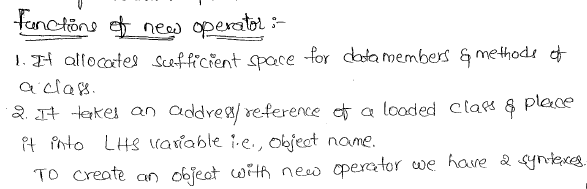 Functions of new operator :-
1. It allocates sufficient space for data members & methods of
a class.
2. It takes an address/reference of a loaded class & place
it into LHS variable i.e., object name.
To create an object with new operator we have 2 syntexes.